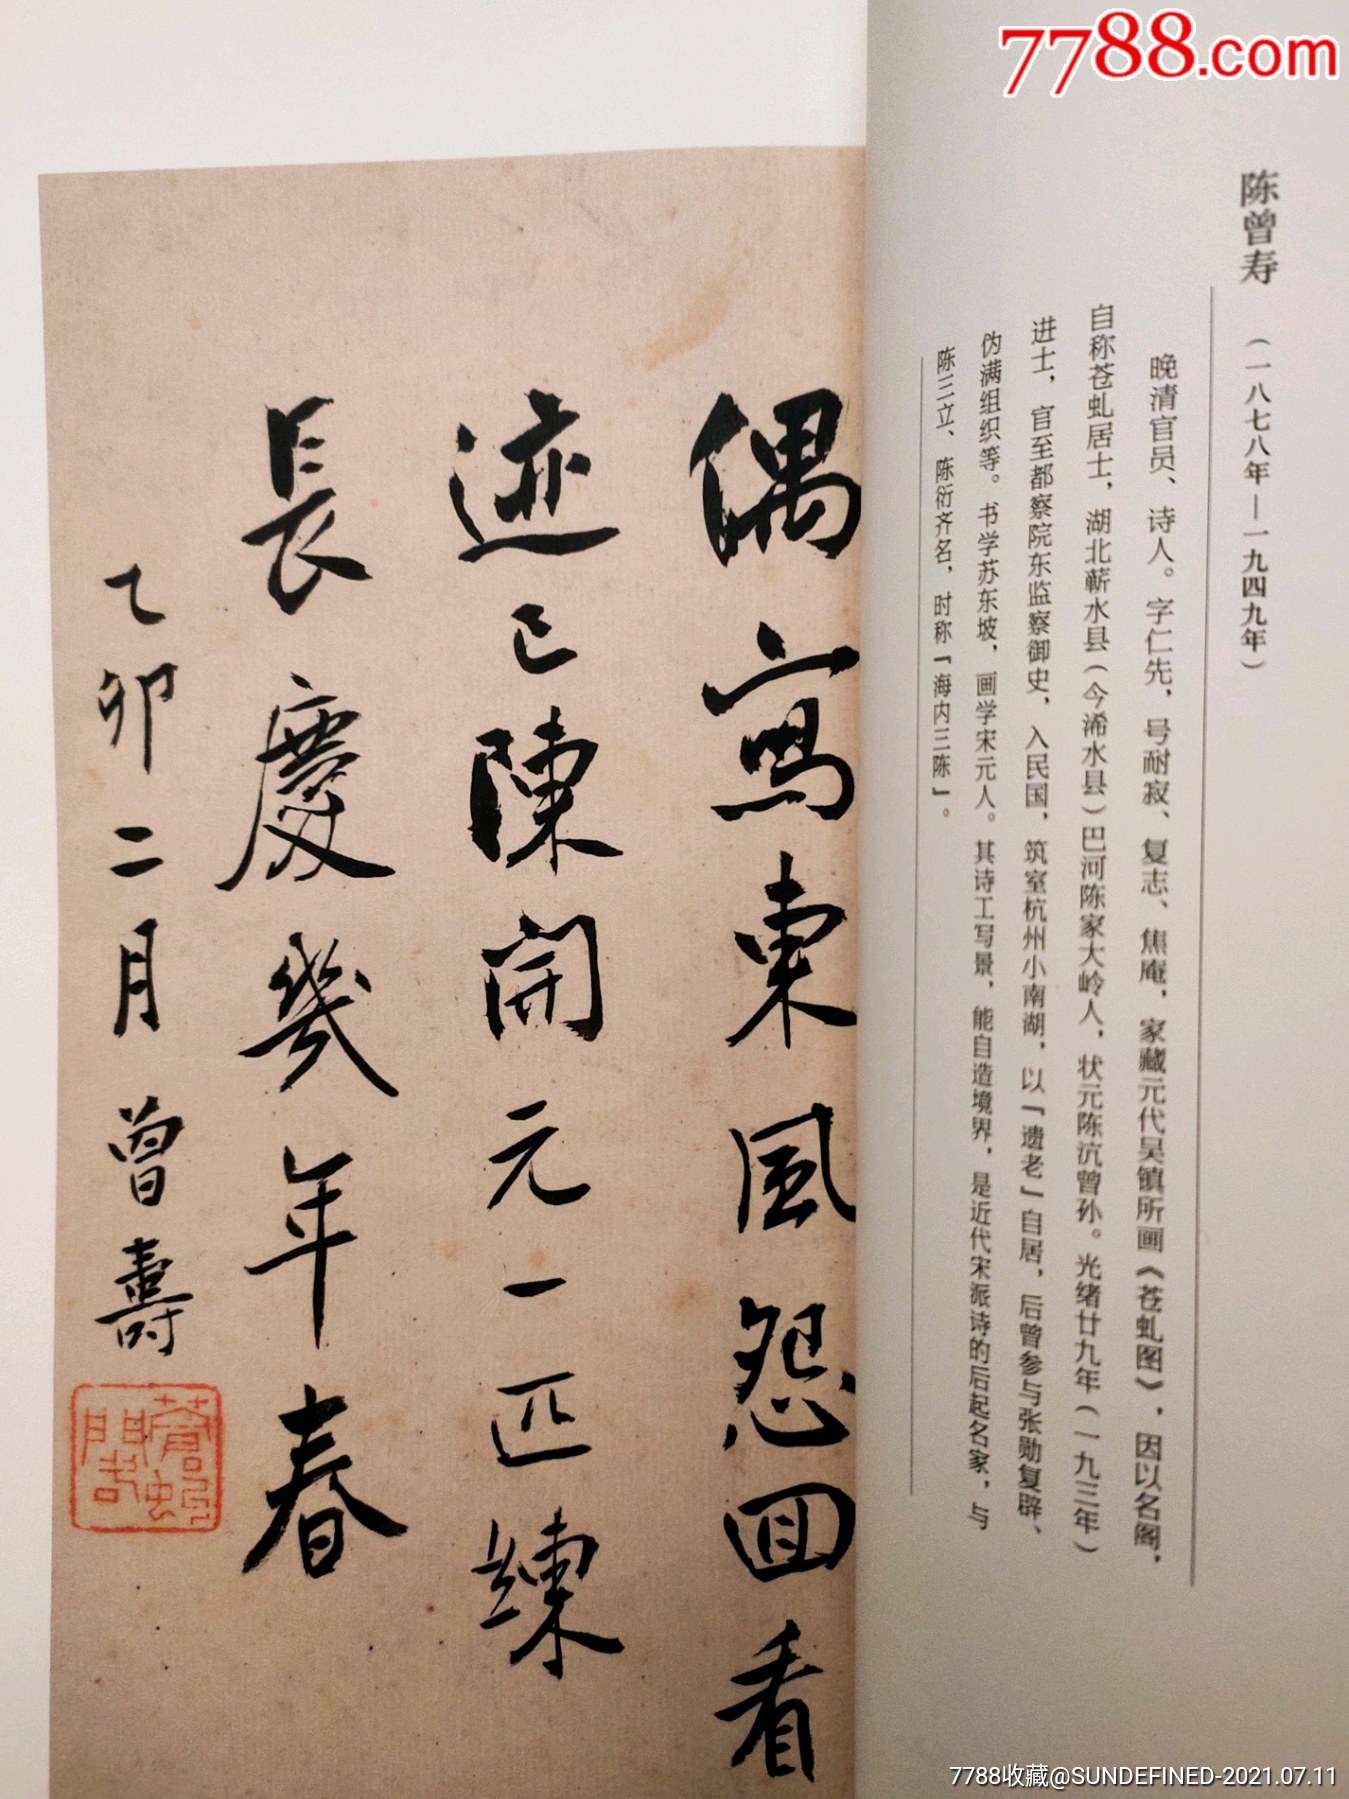 7788.com
陈曾寿
（一八七八年—一九四九年）
晚清官员、诗人。字仁先，号耐寂、复志、焦庵，家藏元代吴镇所画《苍虬图》，因以名阁，
自称苍虬居士，湖北蕲水县（今浠水县）巴河陈家大岭人，状元陈沆曾孙。光绪廿九年（一九三年）
进士，官至都察院东监察御史，入民国，筑室杭州小南湖，以「遗老」自居，后曾参与张勋复辟、
伪满组织等。书学苏东坡，画学宋元人。其诗工写景，能自造境界，是近代宋派诗的后起名家，与
陈三立、陈衍齐名，时称「海内三陈」。
偶寫東風怨回看
迹已陳開元一匹練
長慶幾年春
乙卯二月曾壽
蒼虬
7788收藏@SUNDEFINED-2021.07.11